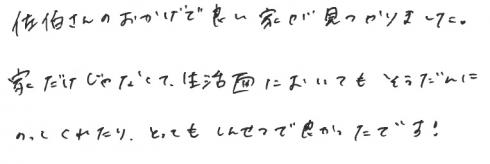 佐伯さんのおかげで良い家が見つかりました。
家だけじゃなくて、生活面においてもそうだんに
のってくれたり、とってもしんせつで良かったです!